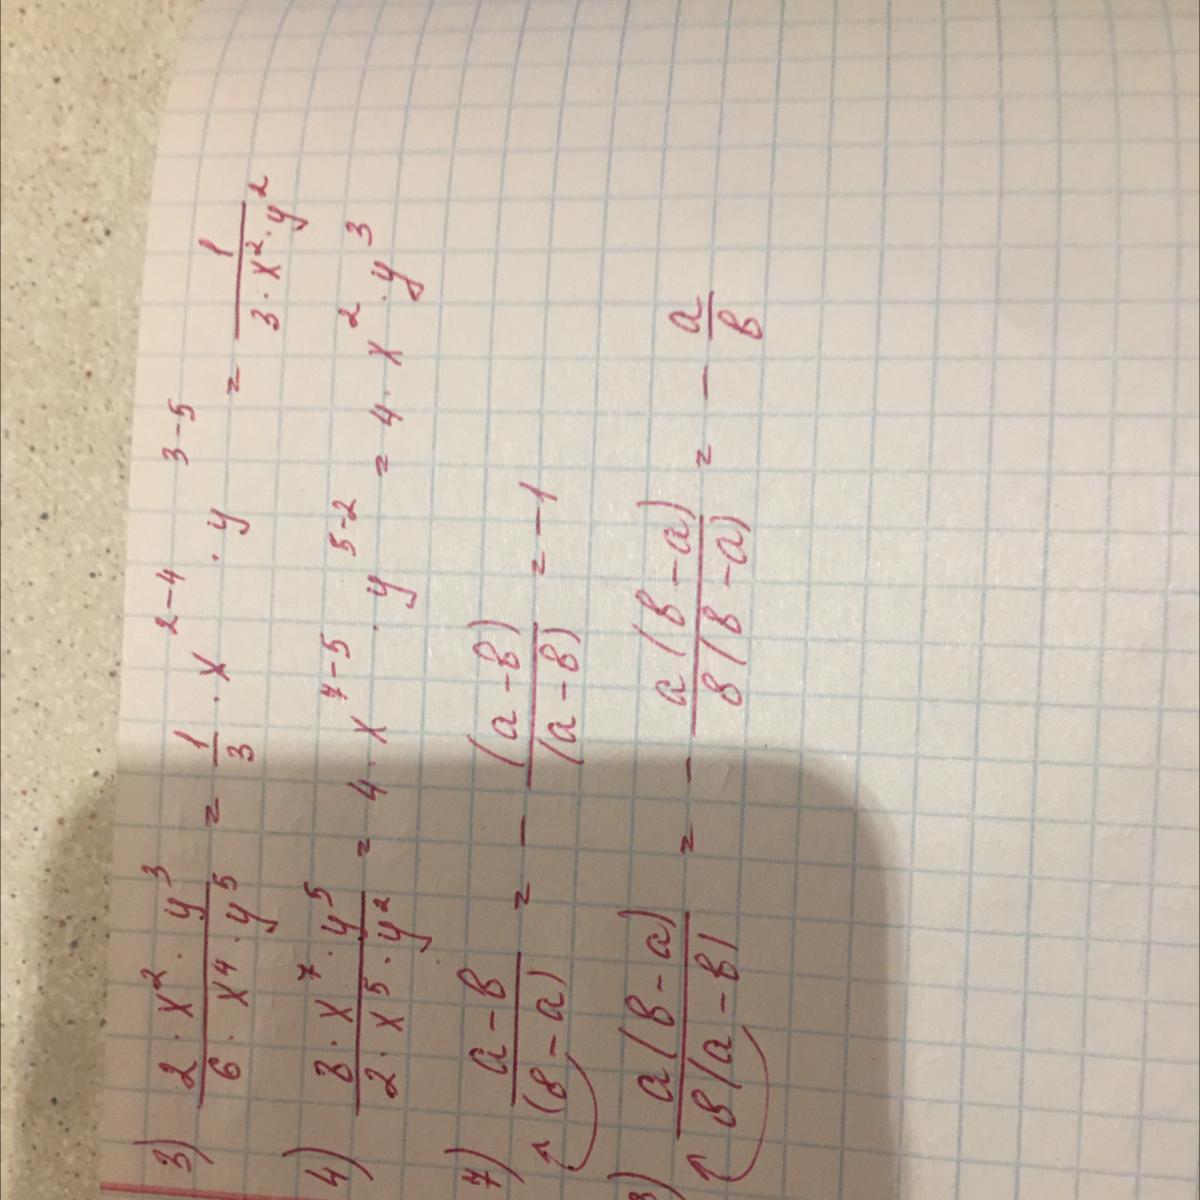 3) (2 · x² · y³)/(6 · x⁴ · y⁵) = 1/3 · x²⁻⁴ · y³⁻⁵ = 1/(3 · x² · y²)
4) (8 · x⁷ · y⁵)/(2 · x⁵ · y²) = 4 · x⁷⁻⁵ · y⁵⁻² = 4 · x² · y³
7) (a − в)/(в − a) = − (a − в)/(a − в) = −1
8) a(в − a)/в(a − в) = − a(в − a)/в(в − a) = − a/в